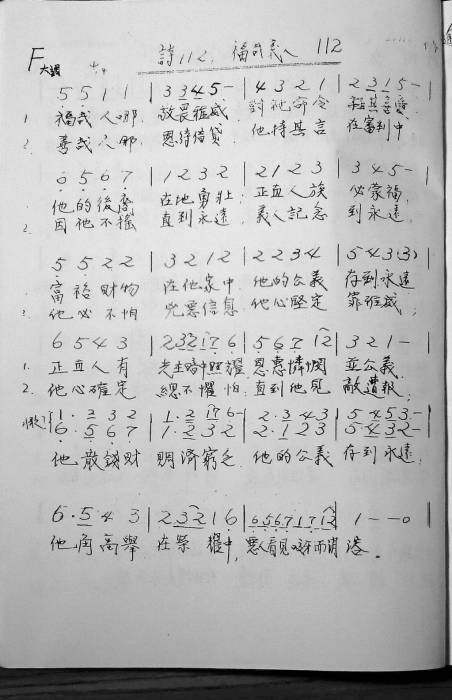 詩112. 福哉義人 112
F大調 4/4
5 5 1 1 | 3 3 4 5 - | 4 3 2 1 | 2 3 1 5 - |
1 福哉人哪 敬畏雅威 對祂命令 極其喜愛
2. 善哉人哪 恩待借貸. 他持其言 在審判中
6 5 6 7 | 1 2 3 2 | 2 1 2 3 | 3 4 5 - |
他的後裔 在地勇壯; 正直人族 必蒙福,
2. 因他不搖 直到永遠, 義人記念 到永遠
5 5 2 2 | 3 2 1 2 | 2 2 3 4 | 5 4 3 (3)
富裕財物 在他家中. 他的公義 存到永遠
他必不怕 兇惡信息, 他心堅定 靠雅威;
6 5 4 3 | 2 3 2 1 7 6 | 5 6 7 1 2 | 3 2 1 - |
1. 正直人有 光在暗中照耀 恩惠憐憫 並公義
2. 他心確定 總不懼怕, 直到他見 敵遭報;
1 . 2 3 2 | 1 . 2 1 7 6 - | 2 . 3 4 3 | 5 4 5 3 - |
6 . 5 6 7 | 1 . 2 3 2 | 2 . 1 2 3 | 5 4 3 2 - |
他散錢財 賙濟窮乏. 他的公義 存到永遠;
6 . 5 4 3 | 2 3 2 1 6 | 6 5 6 7 1 7 1 2 | 1 - - 0 |
他角高舉 在榮耀中, 惡人看見 咬牙而消溶。